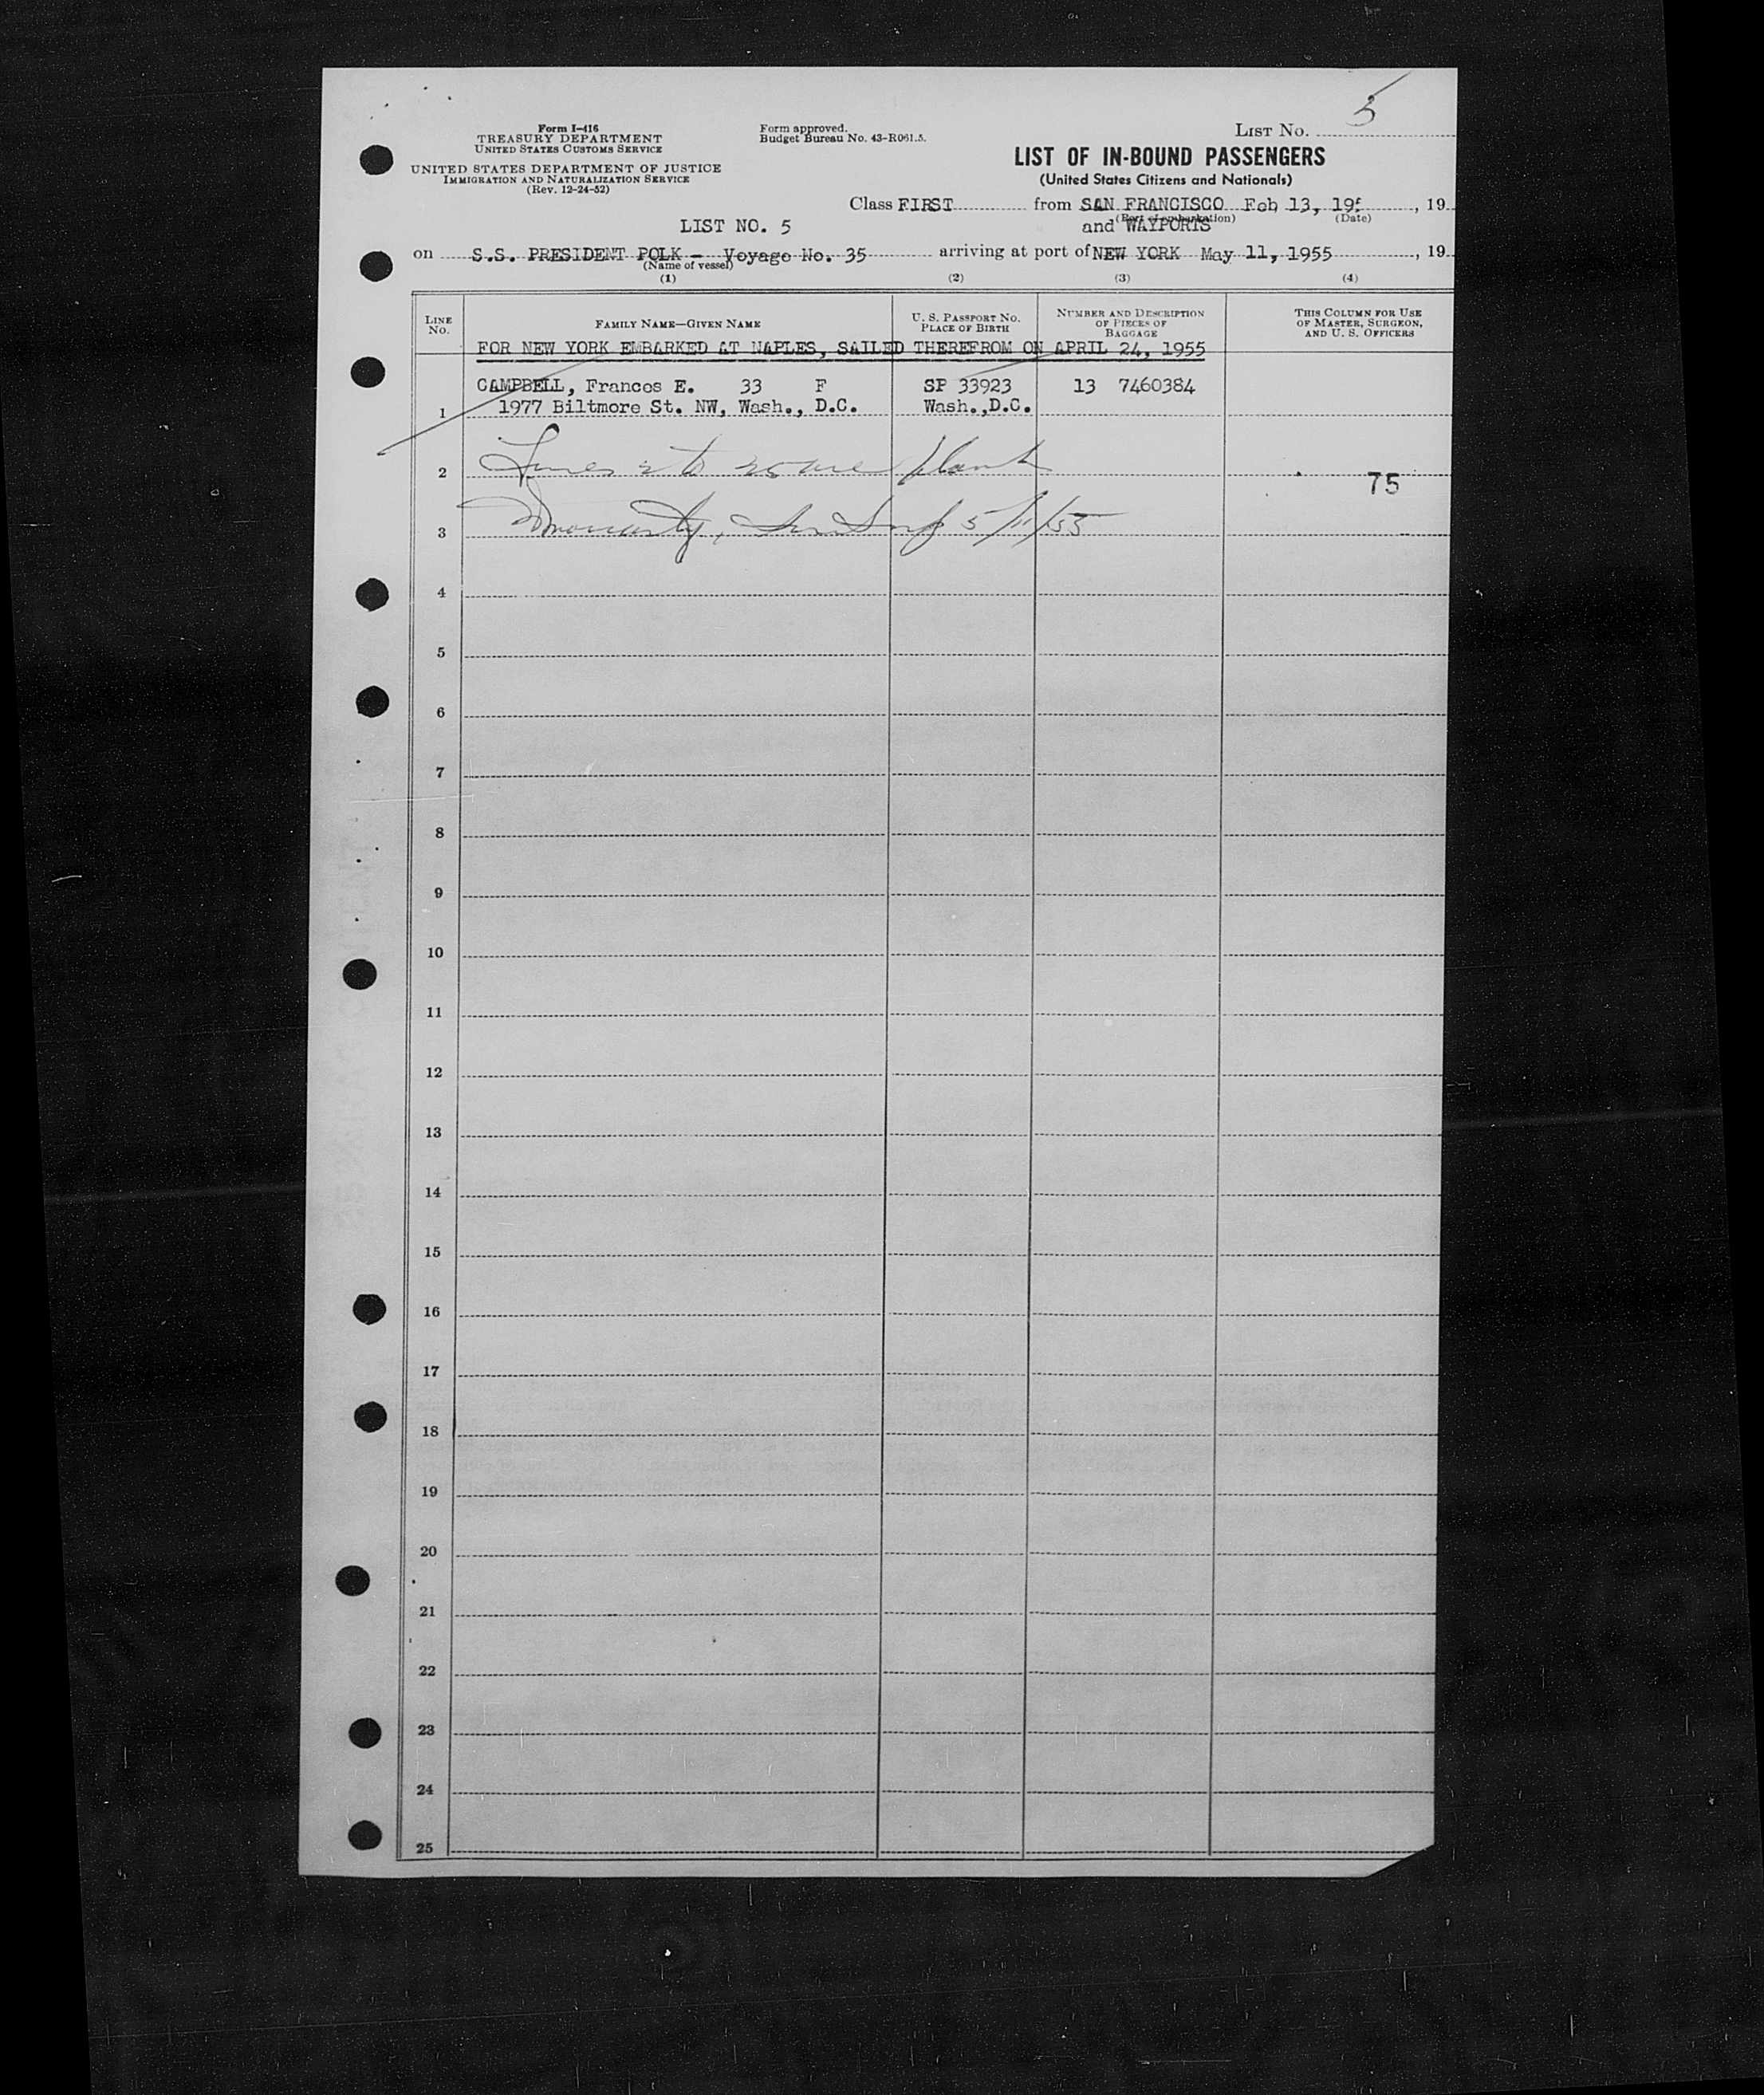 5
Form I-416
TREASURY DEPARTMENT
UNITED STATES CUSTOMS SERVICE
UNITED STATES DEPARTMENT OF JUSTICE
IMMIGRATION AND NATURALIZATION SERVICE
(Rev. 12-24-52)
Form approved.
Budget Bureau No. 43-R061.5.
LIST NO.
LIST OF IN-BOUND PASSENGERS
(United States Citizens and Nationals)
Class FIRST from SAN FRANCISCO Feb 13, 195, 19
(Port of embarkation) (Date)
LIST NO. 5 and WAYPORTS
on S.S. PRESIDENT POLK - Voyage No. 35 arriving at port of NEW YORK May 11, 1955, 19
(Name of vessel)
(1) (2) (3) (4)
LINE NO. FAMILY NAME—GIVEN NAME U. S. PASSPORT NO. PLACE OF BIRTH NUMBER AND DESCRIPTION OF PIECES OF BAGGAGE THIS COLUMN FOR USE OF MASTER, SURGEON, AND U. S. OFFICERS
FOR NEW YORK EMBARKED AT NAPLES, SAILED THEREFROM ON APRIL 24, 1955
CAMPBELL, Frances E. 33 F SP 33923 13 7460384
1 1977 Biltmore St. NW, Wash., D.C. Wash.,D.C.
2 Lines 2 to 25 are blank
75
3 5/11/55
4
5
6
7
8
9
10
11
12
13
14
15
16
17
18
19
20
21
22
23
24
25